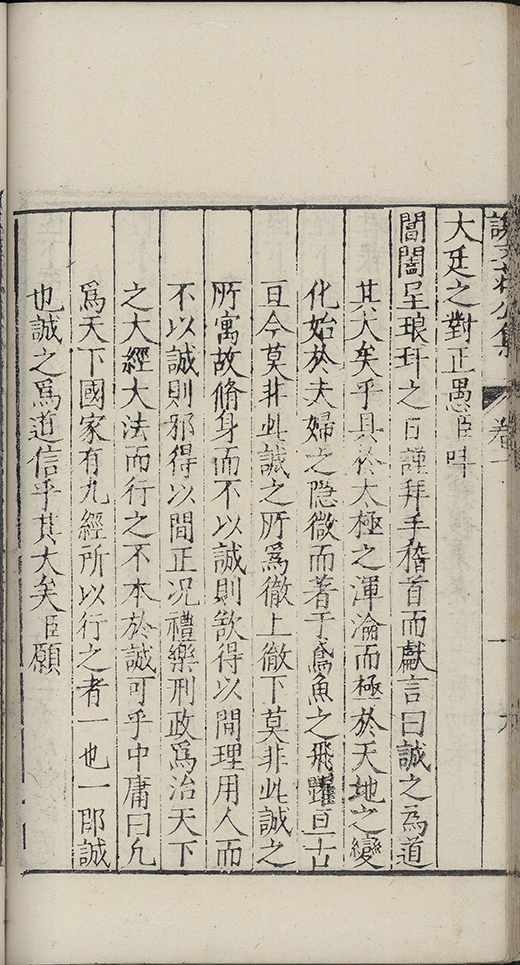 大廷之對正愚臣吁
閶闔呈琅玕之日謹拜手稽首而獻言曰誠之為道
其大矣乎具於太極之渾淪而極於天地之變
化始於夫婦之隐微而著于鳶魚之飛躍亘古
亘今莫非此誠之所爲徹上徹下莫非此誠之
所寓故脩身而不以誠則欲得以間理用人而
不以誠則邪得以間正况禮樂刑政爲治天下
之大經大法而行之不本於誠可乎中庸曰凢
爲天下國家有九經所以行之者一也一即誠
也誠之爲道信乎其大矣臣願